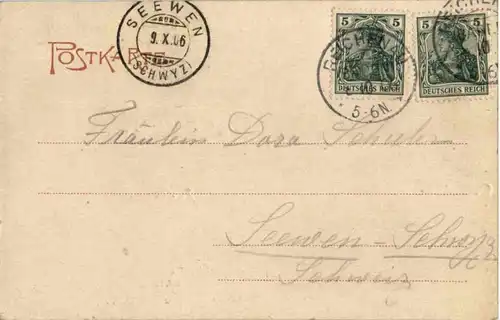 SEEWEN
9.X.06
(SCHWYZ)
POSTKARTE
5 5
DEUTSCHES REICH
5-6N.
5 5
DEUTSCHES REICH
Fräulein Dora
Seewen - Schwyz
Schweiz